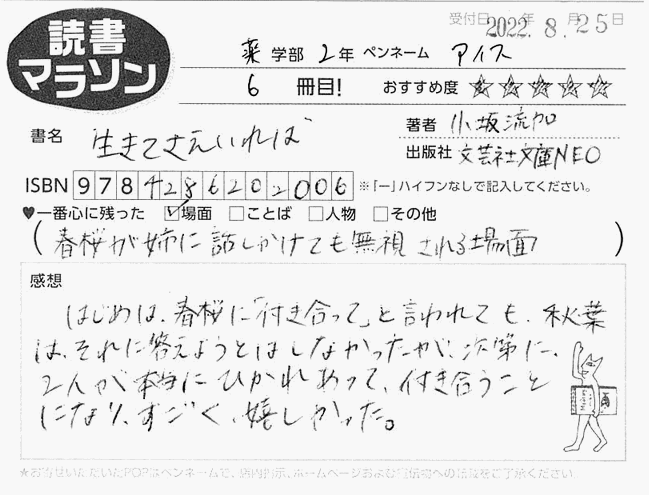 読書
マラソン
受付日 2022.年 8.月 25日
薬 学部 2年 ペンネーム アイス
6 冊目! おすすめ度 ★★★★★
書名 生きてさえいれば
著者 小坂流加
出版社 文芸社文庫NEO
ISBN 9784286202006 ※「-」ハイフンなしで記入してください。
♥一番心に残った ☑場面 □ことば □人物 □その他
(春桜が姉に話しかけても無視される場面)
感想
はじめは、春桜に「付き合って」と言われても、秋葉
は、それに答えようとはしなかったが、次第に、
2人が本当にひかれあって、付き合うこと
になり、すごく、嬉しかった。
★お寄せいただいたPOPはペンネームで、店内掲示、ホームページおよび宣伝物への掲載をご了承ください